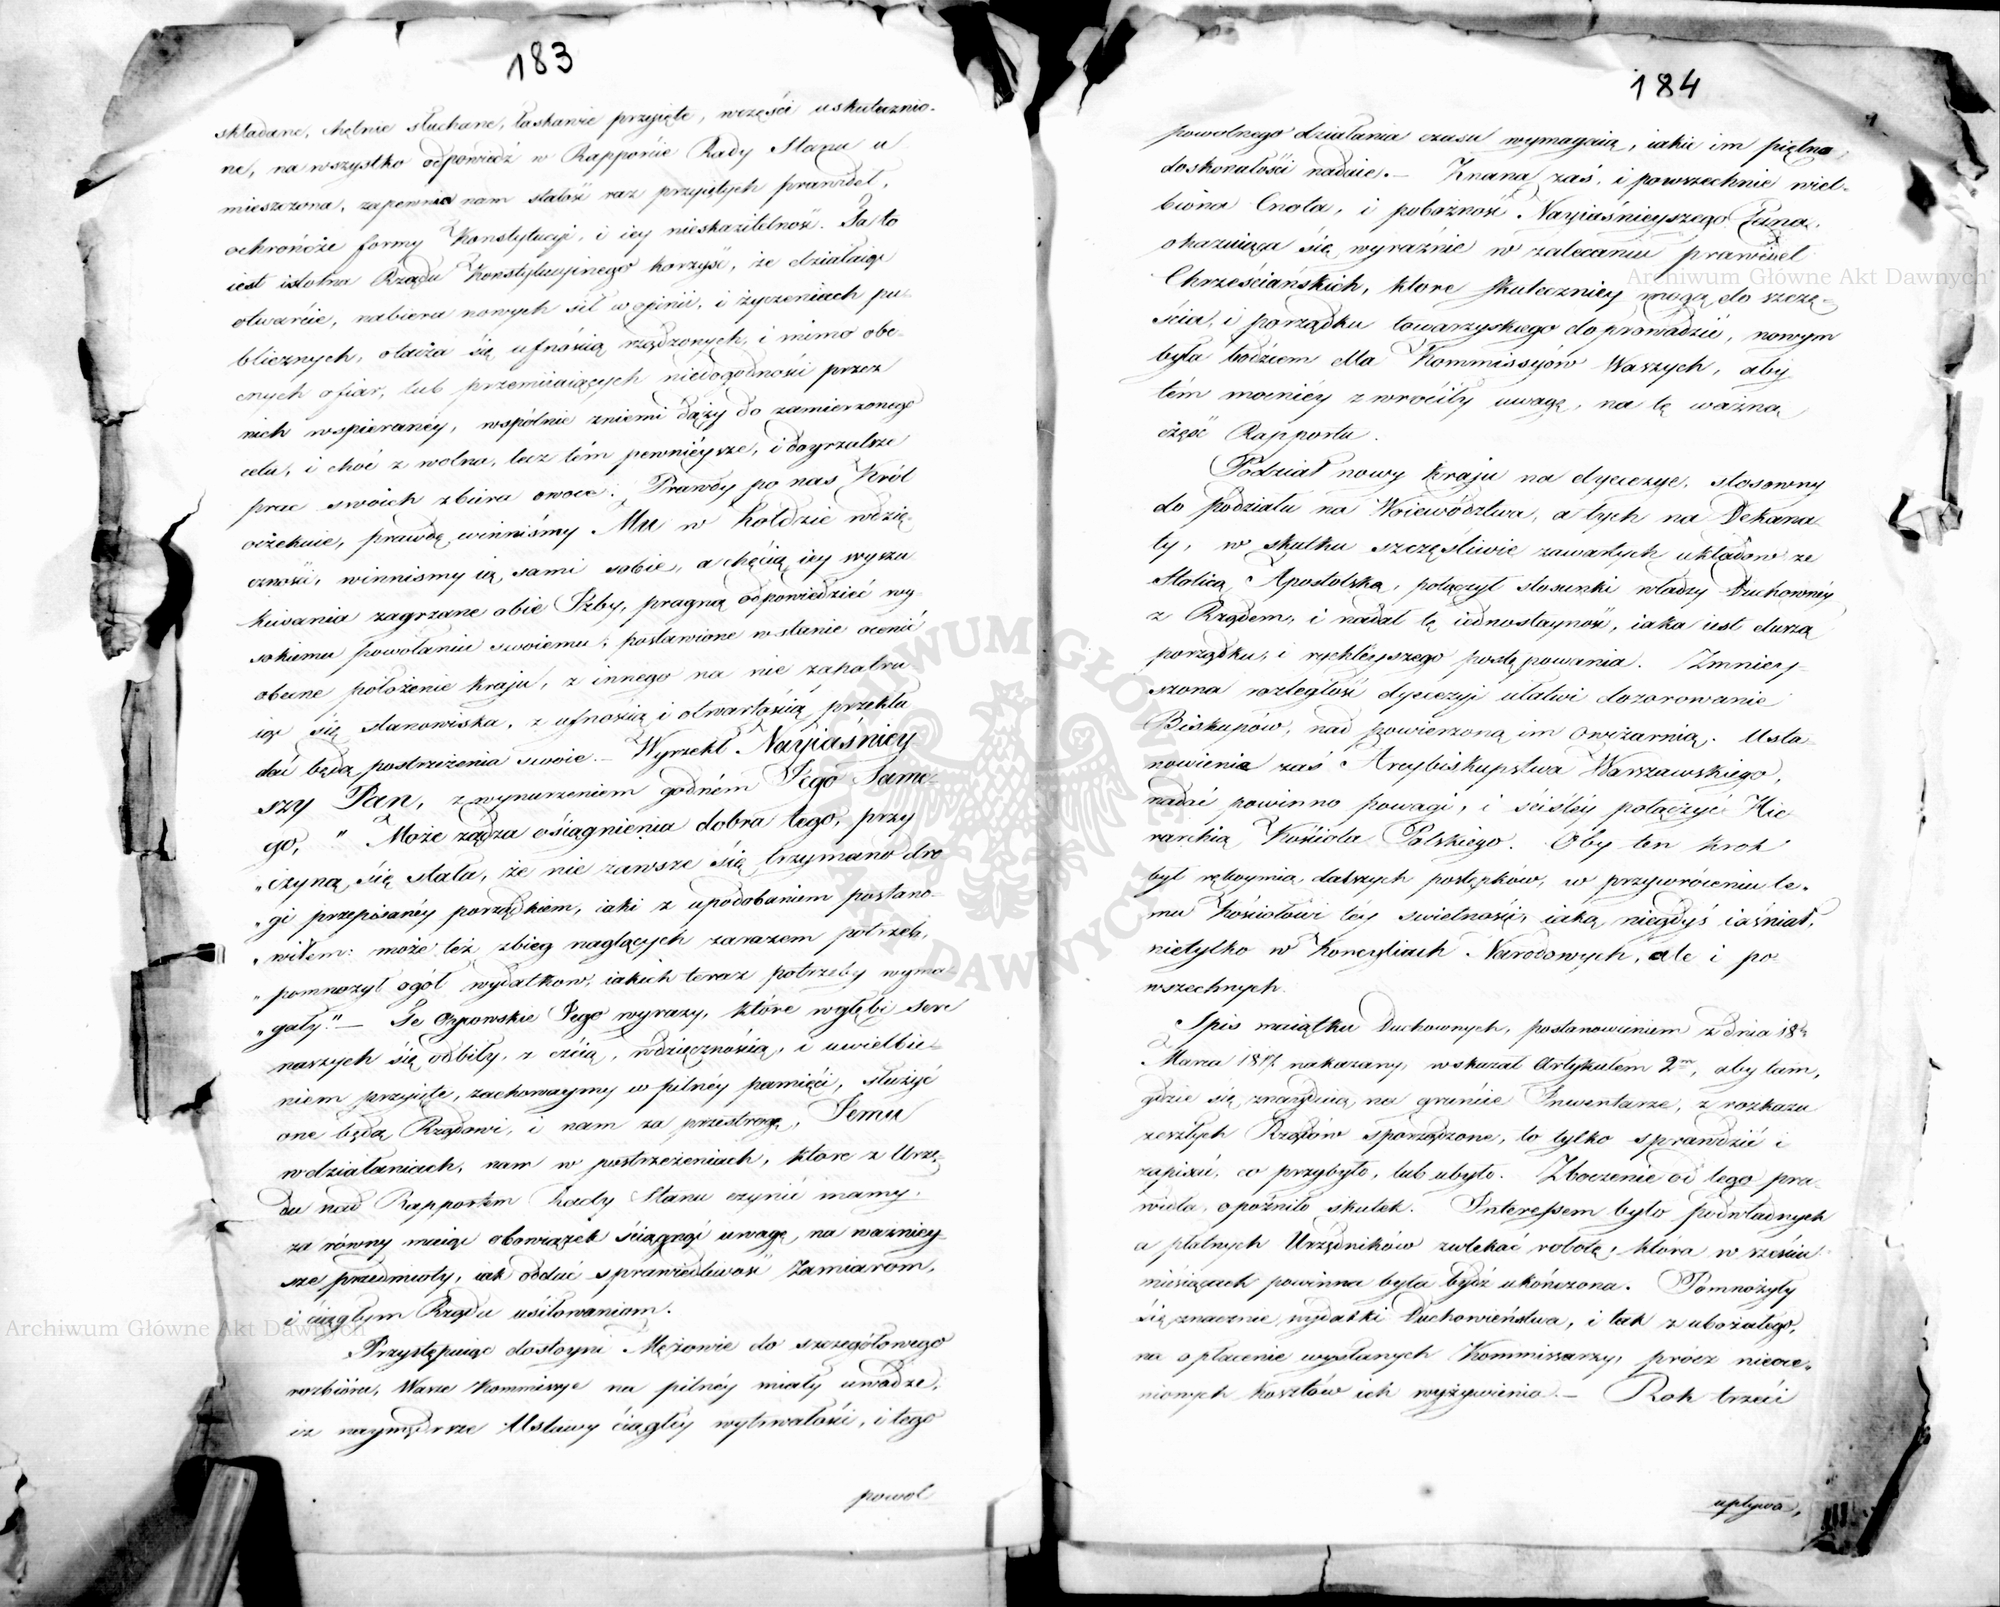 183
składane, chętnie słuchane, łaskawie przyięte, wczęści uskutecznio-
ne, na wszystko odpowiedź w Rapporcie Rady Stanu u
mieszczona, zapewnia nam stałość raz przyiętych prawideł,
ochrończe formy Konstytucyi, i iey nieskazitelność. Ta to
iest istotna Rządu Konstytucyinego korzyść, że działaiąc
otwarcie, nabiera nowych sił w opinii, i życzeniach pu-
blicznych, otacza się ufnością rządzonych, i mimo obe-
cnych ofiar, lub przemiiaiących niedogodności przez
nich wspieranéy, wspólnie zniemi dąży do zamierzonego
celu, i choć z wolna, lecz tém pewnieysze, i doyrzalsze
prac swoich zbiera owoce. Prawdy po nas Król
oczekuie, prawdę winniśmy Mu w hołdzie wdzię-
czności, winnismy ią sami sobie, a chęcią iey wyszu
kiwania zagrzane obie Izby, pragną odpowiedzieć wy
sokiemu powołaniu swoiemu; postawione w stanie ocenić
obecne położenie kraju, z innego na nie zapatru
iąc się stanowiska, z ufnością i otwartością przekła
dać będą postrzeżenia swoie. — Wyrzekł Nayiaśniey-
szy Pan, z wynurzeniem godném Jego Same-
go, " Może żądza osiągnienia dobra tego, przy
„czyną się stała, że nie zawsze się trzymano dro
„gi przepisanéy porządkiem, iaki z upodobaniem postano-
„wiłem: może też zbieg naglących zarazem potrzeb,
„pomnożył ogół wydatkow, iakich teraz potrzeby wyma-
„gały." — Te Oycowskie Jego wyrazy, które wgłębi serc
naszych się odbiły, z czcią, wdzięcznością, i uwielbie-
niem przyięte, zachowaymy w pilnéy pamięci, służyć
one będą Rządowi, i nam za przestrogę, Jemu
w działaniach, nam w postrzeżeniach, które z Urzę-
du nad Rapportem Rady Stanu czynić mamy,
za równy maiąc obowiązek ściągnąć uwagę, na ważniey-
sze przedmioty, iak oddać sprawiedliwość zamiarom,
i ciągłym Rządu usiłowaniom.
Przystępuiąc dostoyni Mężowie do szczegółowego
rozbioru, Wasze Kommissye na pilnéy miały uwadze,
iż naymędrsze Ustawy ciągłéy wytrwałości, i tego
powol
184
powolnego działania czasu wymagaią, iakie im piętno
doskonałości nadaie. — Znana zaś, i powszechnie wiel-
biona Cnota, i pobożność Nayiaśnieyszego Pana,
okazuiąca się wyraźnie w zalecaniu prawideł
Chrześciańskich, które skuteczniey mogą do szczę-
ścia, i porządku towarzyskiego doprowadzić, nowym
była bodźcem dla Kommissyów Waszych, aby
tém mocniéy zwróciły uwagę, na tę ważną
część Rapportu.
Podział nowy kraju na dyecezye, stosowny
do podziału na Woiewództwa, a tych na Dekana
ty, w skutku szczęśliwie zawartych układow ze
Stolicą Apostolską, połączył stosunki władzy Duchownéy
z Rządem, i nadał tę iednostayność, iaka iest duszą
porządku, i rychléyszego postępowania. Zmniey-
szona rozległość dyecezyi ułatwi dozorowanie
Biskupów, nad powierzoną im owczarnią. Usta-
nowienie zaś Arcybiskupstwa Warszawskiego,
nadać powinno powagi, i ściśléy połączyć Hie
rarchią Kościoła Polskiego. Oby ten krok
był rękoymią dalszych postępków, w przywróceniu te-
mu Kościołowi téy swietności, iaką niegdyś iaśniał,
nietylko w Koncyliach Narodowych, ale i po
wszechnych.
Spis maiątku Duchownych, postanowieniem z dnia 18o
Marca 1817 nakazany, wskazał Artykułem 2m, aby tam,
gdzie się znayduią na gruncie Inwentarze, z rozkazu
zeszłych Rządów sporządzone, to tylko sprawdzić i
zapisać, co przybyło, lub ubyło. Zboczenie od tego pra-
widła, opóźniło skutek. Interessem było podwładnych
a płatnych Urzędników zwlekać robotę, która w sześciu
miesiącach powinna była bydź ukończona. Pomnożyły
się znacznie wydatki Duchowieństwa, i tak zubożałego,
na opłacenie wysłanych Kommissarzy, prócz nieoce-
nionych kosztów ich wyżywienia. — Rok trzeci
upływa,
Archiwum Główne Akt Dawnych
Archiwum Główne Akt Dawnych
ARCHIWUM GŁÓWNE AKT DAWNYCH